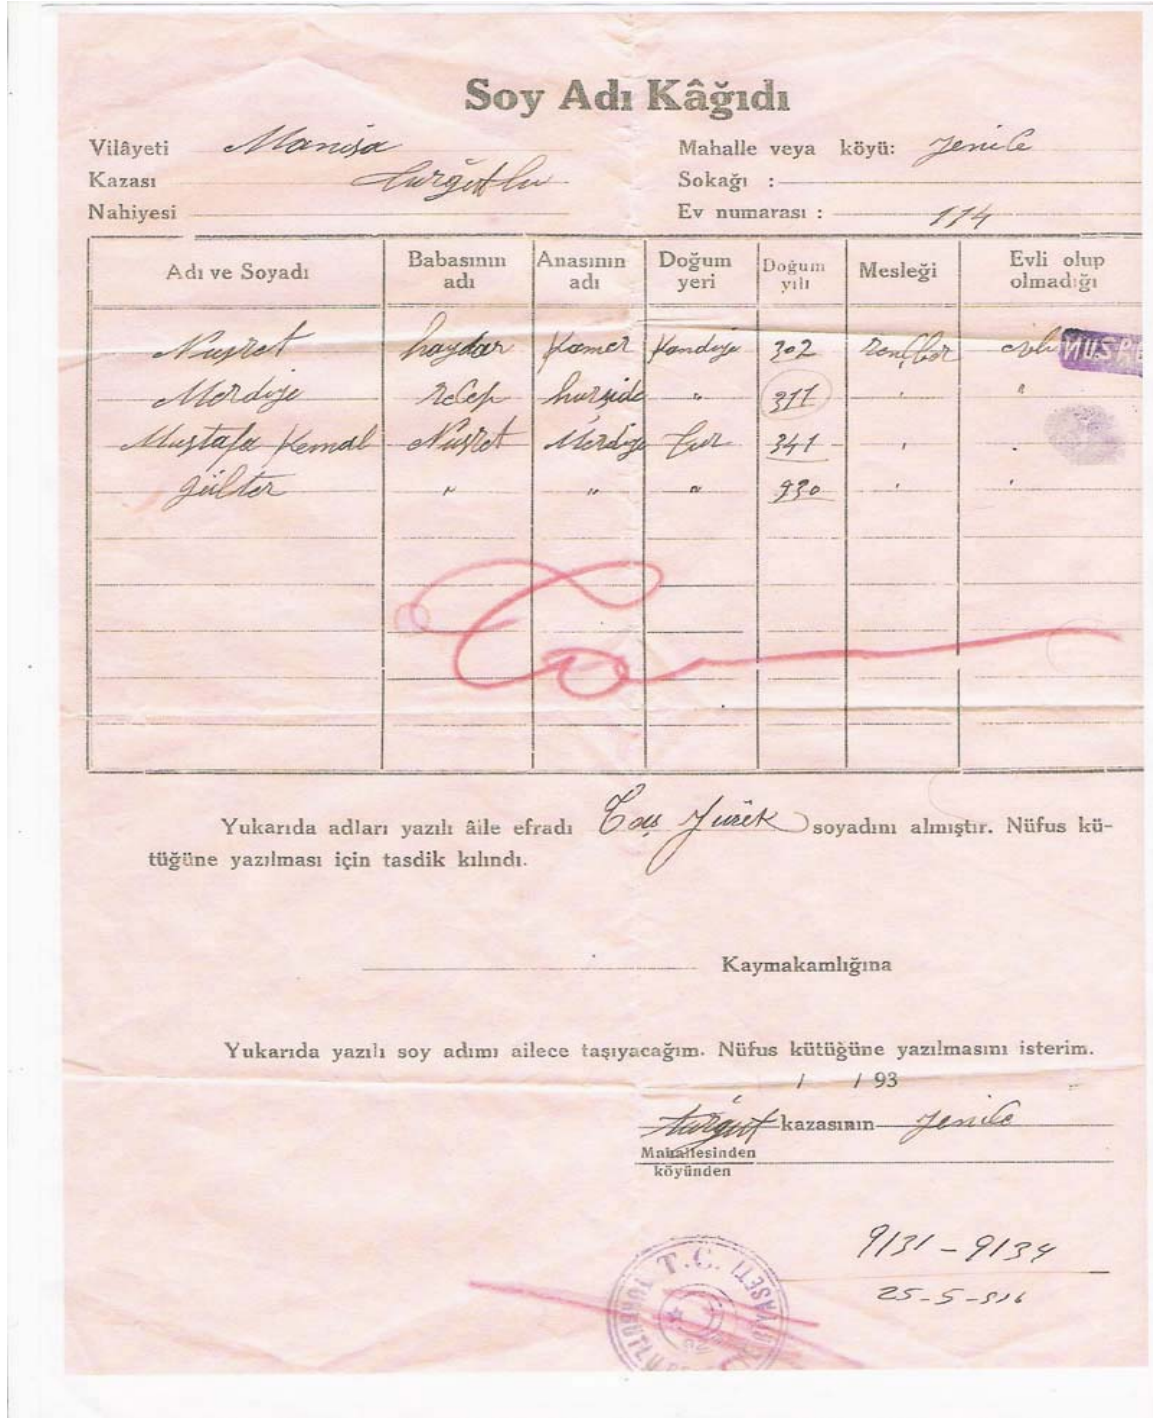 Soy Adı Kâğıdı
Vilâyeti Manisa Mahalle veya köyü: Jenice
Kazası turğutlu Sokağı :
Nahiyesi Ev numarası : 114
Adı ve Soyadı Babasının adı Anasının adı Doğum yeri Doğum yılı Mesleği Evli olup olmadığı
Nusret haydar Kamer Kandiye 302 rençber evli NUSRE
Merdiye recep hurşide " 311 " "
Mustafa Kemal Nusret Merdiye Tur 341 "
gülter " " " 930 " "
Yukarıda adları yazılı âile efradı Taş Jürek soyadını almıştır. Nüfus kü-
tüğüne yazılması için tasdik kılındı.
Kaymakamlığına
Yukarıda yazılı soy adımı ailece taşıyacağım. Nüfus kütüğüne yazılmasını isterim.
/ / 93
turgut kazasının Jenice
Mahallesinden
köyünden
9131 - 9134
T.C.
25-5-